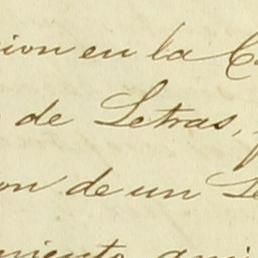 ion en la C
de Letras,
on de un Le
miento